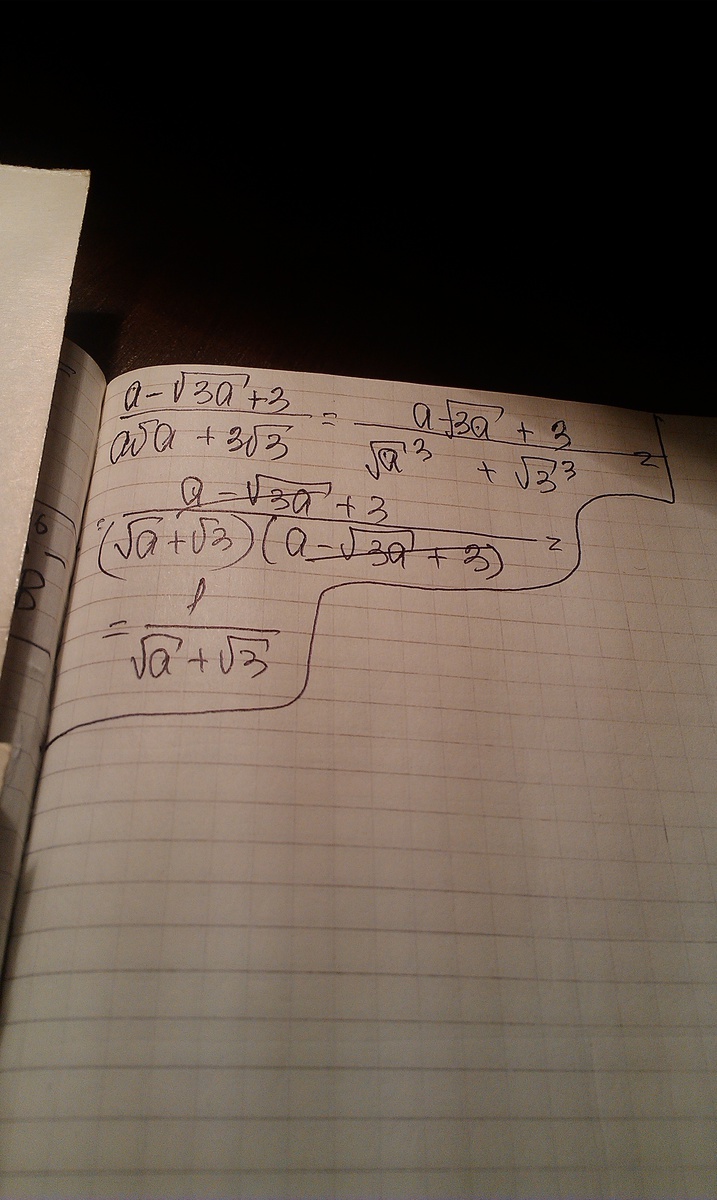 (a - √(3a) + 3)/(a√a + 3√3) = (a - √(3a) + 3)/(√a³ + √3³) =
= (a - √(3a) + 3)/((√a + √3)(a - √(3a) + 3)) =
= 1/(√a + √3)